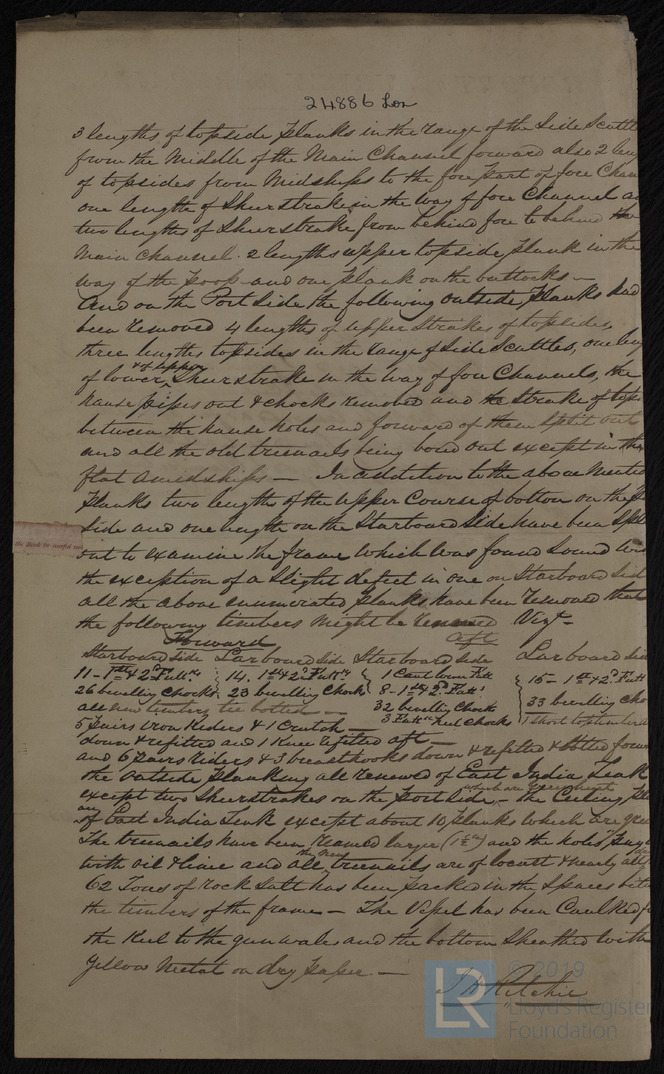 24886 Lon
3 lengths of topside planks in the range of the Side Scuttle
from the Middle of the Main Channel forward also 2 leng
of topsides from Midships to the fore part of fore Chan
one length of Sheerstrake in the way of fore Channel a
two lengths of Sheerstrake from behind fore to behind the
Main Channel. 2 lengths upper topside plank in the
way of the poop and one plank on the buttocks —
And on the Port Side the following outside planks had
been removed 4 lengths of upper Strakes of topsides,
three lengths topsides in the range of Side Scuttles, one leng
of lower & of upper Sheerstrake in the way of fore Channels, the
hause pipes out & chocks removed and the Strake of tops
between the hause holes and forward of them split out
and all the old treenails being bored out except in the
flat amidships — In addition to the above mentio
planks two lengths of the upper Course of bottom on the P
Side and one length on the Starboard Side have been Spli
out to examine the frame which was found Sound wi
the exception of a Slight defect in one on Starboard Sid
all the above enumerated planks have been removed that
the following timbers might be renewed Vizt—
Forward aft
Starboard Side Larboard Side Starboard Side Larboard Sid
11 - 1st & 2d Futt's 14. 1st & 2d Futt's 1 Cant 15 - 1st & 2d Futt
26 bevelling Chocks 23 bevelling Chocks 8 - 1st & 2d Futt's 33 bevelling cho
32 bevelling Chocks 1 Short
all new timbers bolted — 3 Futt Heel chocks
5 pairs iron Riders & 1 Crutch —
down & refitted and 1 Knee refitted aft —
and 6 pairs riders & 3 breasthooks down & refitted & bolted forw
the outside planking all renewed of East India Teak
except two Sheerstrakes on the Port Side, which are Greenheart the Ceiling pl
are of East India Teak except about 10 planks which are gree
The treenails have been reamed larger (1½ in) and the holes pay
with oil & lime and all the new treenails are of locust & nearly all
62 Tons of rock Salt has been packed in the Spaces bet
the timbers of the frame — The Vessel has been Caulked f
the Keel to the gunwales and the bottom Sheathed with
yellow Metal on dry paper —
J H Ritchie
LR
© 2019
Lloyd's Register
Foundation